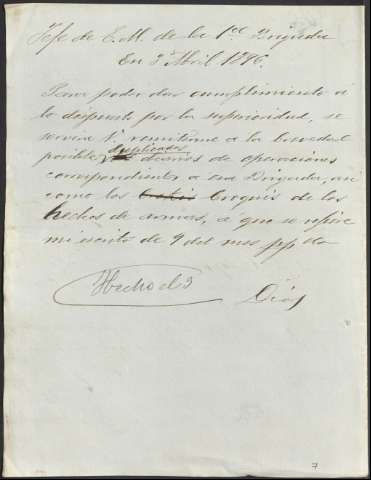 Jefe de E. M. de la 1ra Brigada
En 3 Abril 1896.
Para poder dar cumplimiento á
lo dispuesto por la superioridad, se
servirá V. remitirme a la brevedad
duplicados
posible, diarios de operaciones
correspondientes a esa Brigada, asi
como los Croquis de los
hechos de armas, á que se refiere
mi escrito de 9 del mes ppdo
Hecho el 3
7